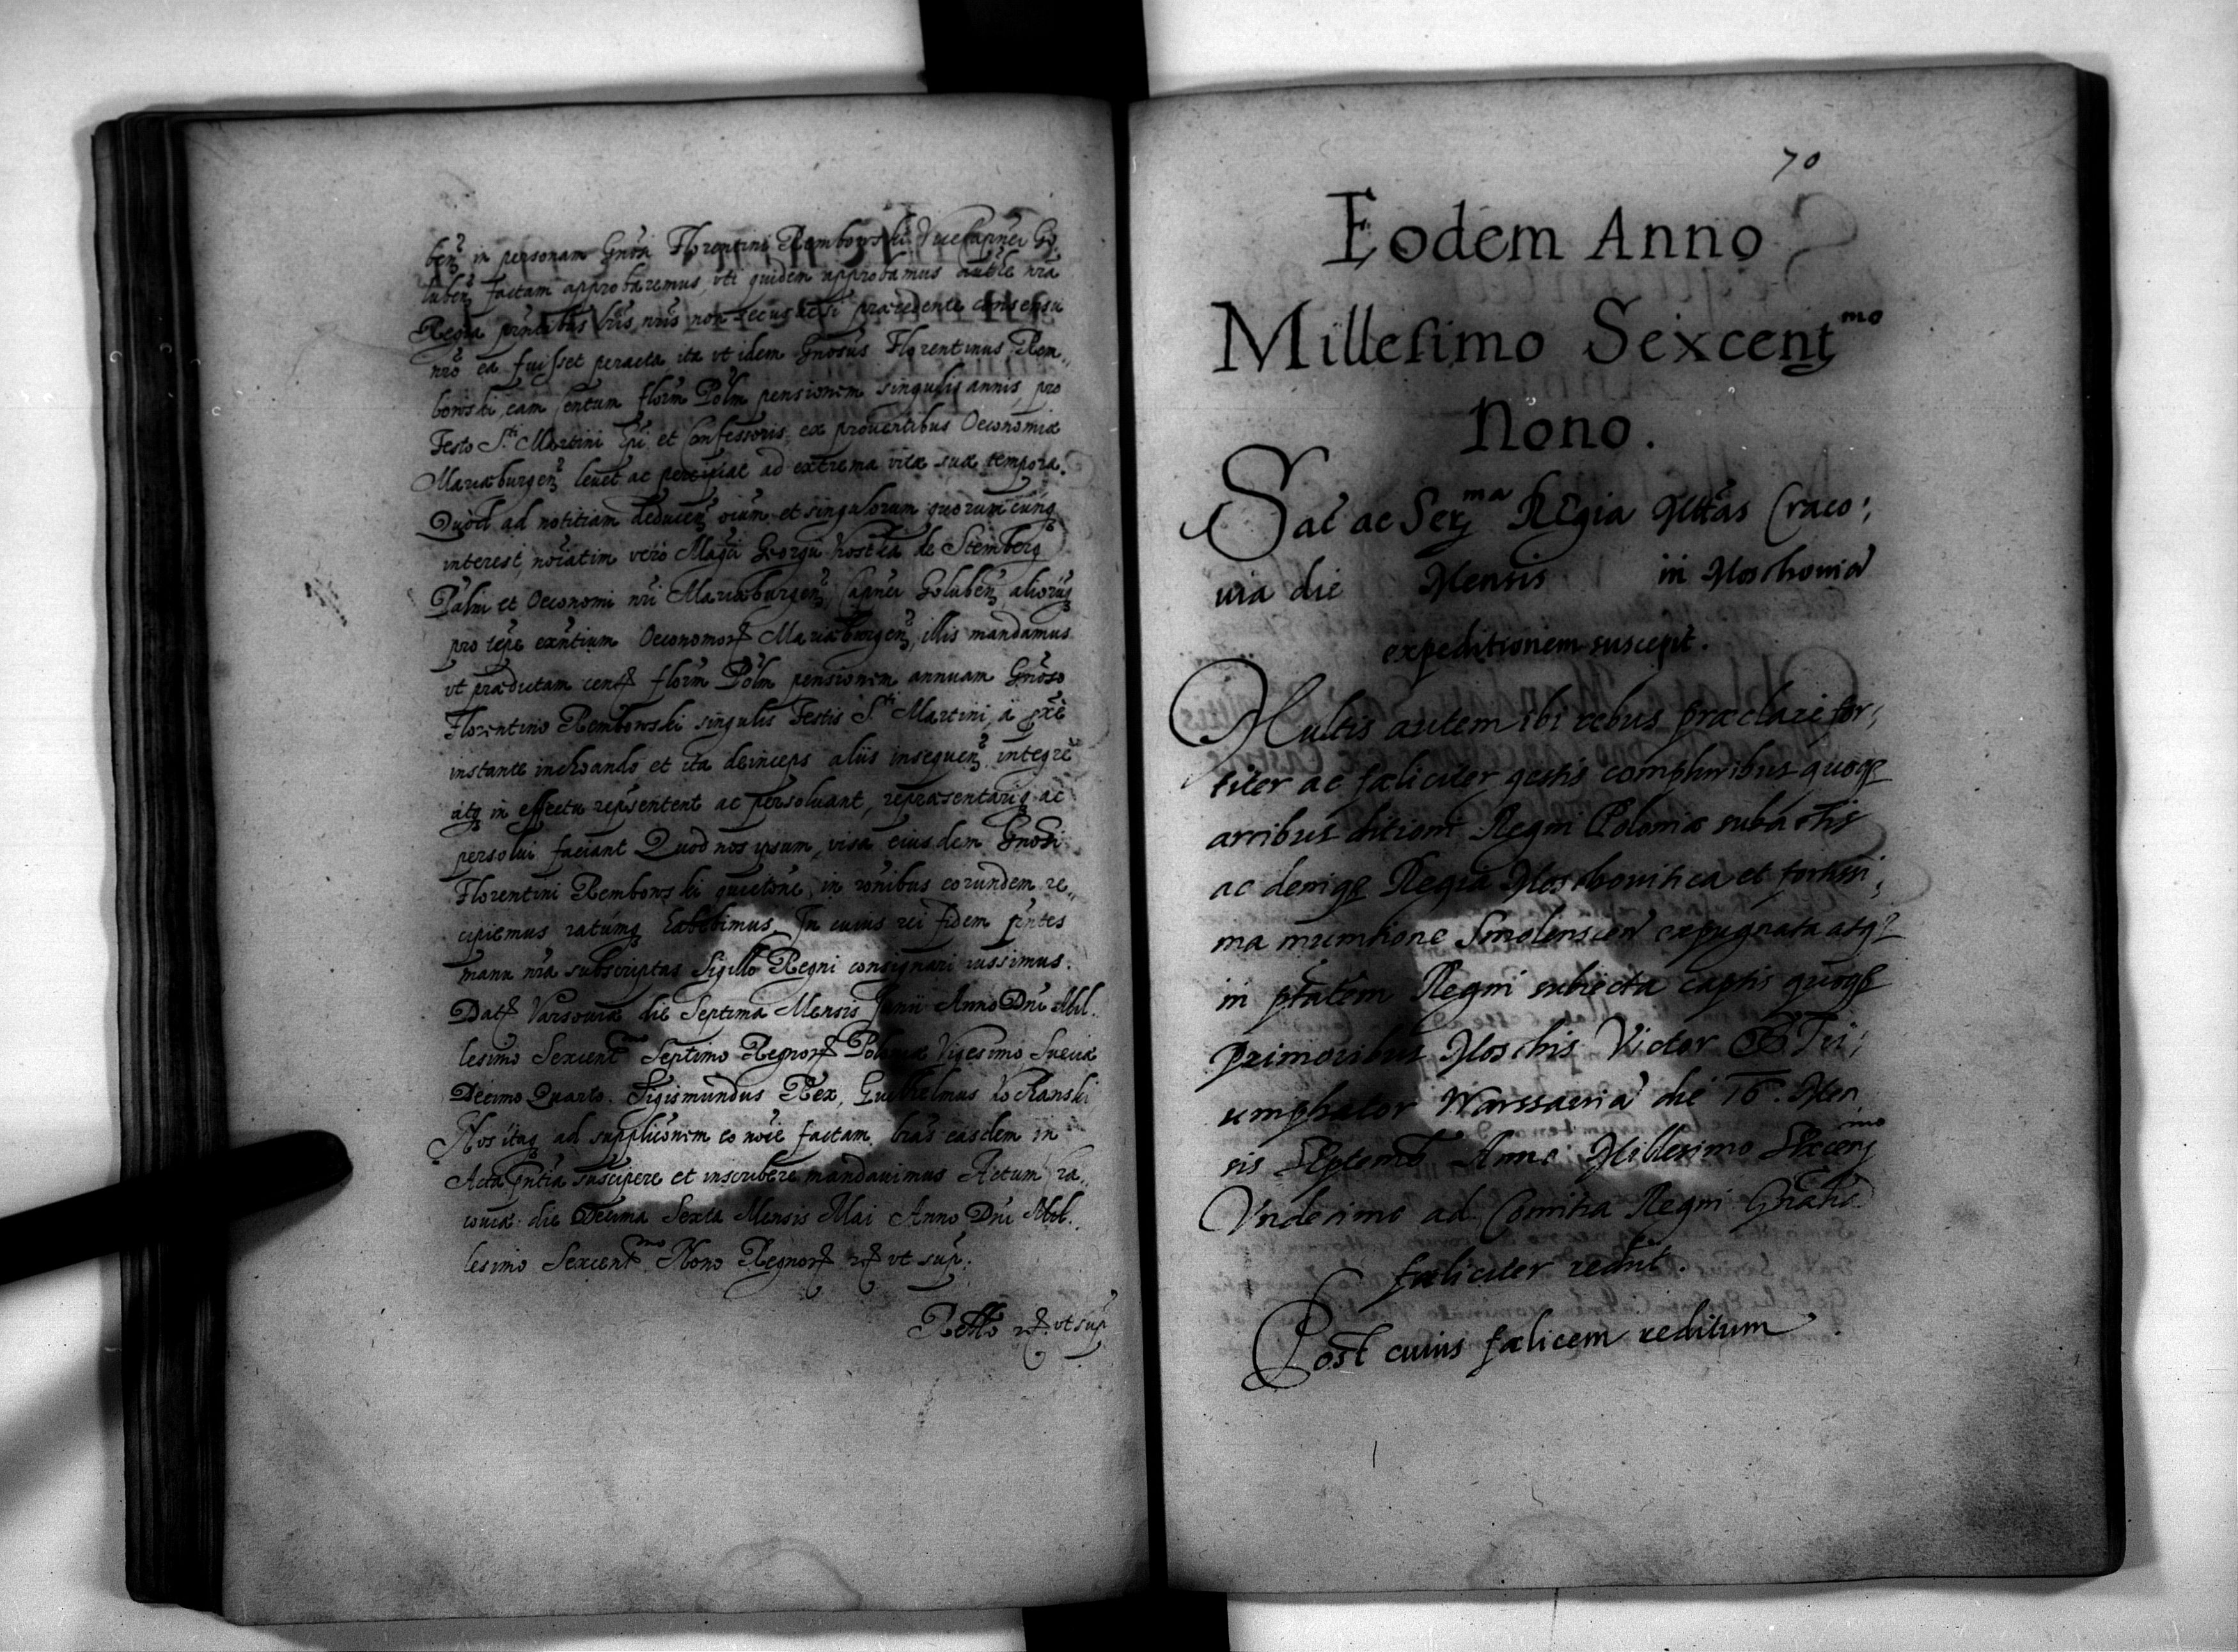 beñ in personam Gñosi Florentini Rembowski Vicecapnei Go
lubeñ factam approbaremus, vti quidem approbamus autħe nrã
Regia pñtibus lris nris non secus ac si præcedente consensu
nrõ ea fuisset peracta, ita vt idem Gnosus Florentinus Rem„
bowski, eam Centum florm Polm pensionem singulis annis, pro
Festo S.ti Martini Epi et Confessoris, ex prouentibus Oeconomiæ
Mariæburgeñ leuet ac percipiat ad extrema vitæ suæ tempora.
Quod ad notitiam deduceñ oium et singulorum quorumcunq
interest, noiatim vero Magci Georgii Kostka de Stemberg
Palni et Oeconomi nri Mariæburgeñ, Capnei Golubeñ, aliorũq
pro tẽpe exñtium Oeconomor Mariæburgeñ, illis mandamus
vt prædictam cent florm Polm pensionem annuam Gnoso
Florentino Rembowski singulis Festis S.ti Martini, à pxe
instante inchoando et ita deinceps aliis insequeñ integre
atq in effectu repsentent ac persoluant, repræsentariq ac
persolui faciant Quod nos ipsum, visa eiusdem Gnosi
Florentini Rembowski quietõne, in rõnibus eorundem re„
cipiemus ratumq habebimus. In cuius rei fidem pñtes
manu nra subscriptas Sigillo Regni consignari iussimus.
Dat Varsouiæ die Septima Mensis Junii Anno Dni Mil.
lesimo Sexcent.mo Septimo Regnor Poloniæ Vigesimo, Sueciæ
Decimo Quarto. Sigismundus Rex, Guilhelmus Kochanski
Nos itaq ad supplicõnem eo noie factam, lras easdem in
Acta pñtia suscipere et inscribere mandauimus Actum Cra„
couiæ die Decima Sexta Mensis Mai Anno Dni Mil.
lesimo Sexcent.mo Nono Regnor rt vt sup.
Rello rt. vt sup
70
Eodem Anno
Millesimo Sexcent mo
Nono.
Sac ac Ser ma REgia Mttas Craco;
uia die Mensis in Moschouia
expeditionem suscepit.
Multis autem ibi rebus præclare for;
titer ac fæliciter gestis compluribus quoqȝ
arcibus ditioni Regni Poloniæ subactis
ac deniqȝ Regia Moschouitica et fortissi;
ma munitione Smolenscen expugnata atqȝ
in ptatem Regni subiecta captis quoqȝ
primoribus Moschis Victor ET Tri;
umphator Warssauia die 16. Men
sis SEptemb Anno Millesimo SExcen mo
Vndecimo ad Comitia Regni Gñalia
fæliciter redijt.
Post cuius fælicem reditum